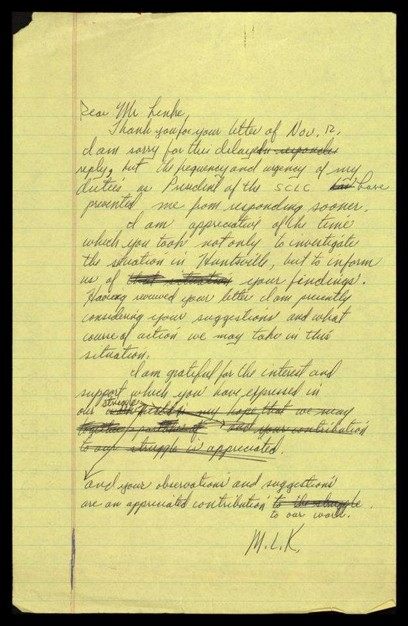 Dear Mr. Linke,
Thank you for your letter of Nov. 12.
I am sorry for this delay in responder
reply, but the frequency and urgency of my
duties as President of the SCLC had have
prevented me from responding sooner.
I am appreciative of the time
which you took not only to investigate
the situation in Huntsville, but to inform
us of that situation your findings.
Having reviewed your letter I am presently
considering your suggestions and what
course of action we may take in this
situation.
I am grateful for the interest and
support which you have expressed in
our struggle my hope that we may
together and your contribution
to our struggle is appreciated.
and your observations and suggestions
are an appreciated contribution to the struggle
to our work.
M.L.K.